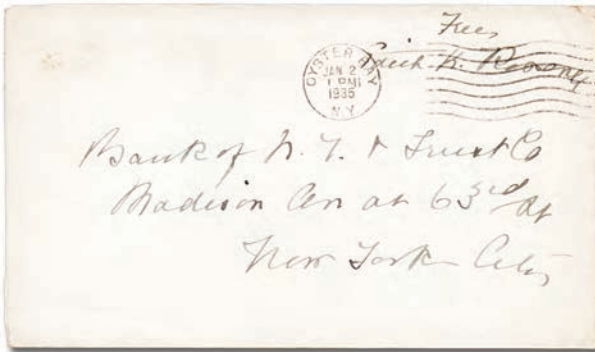 Free
Edith K. Roosevelt
OYSTER BAY
JAN 2
1 PM
1935
N.Y.
Bank of N. Y. & Trust Co
Madison Av at 63rd St
New York City